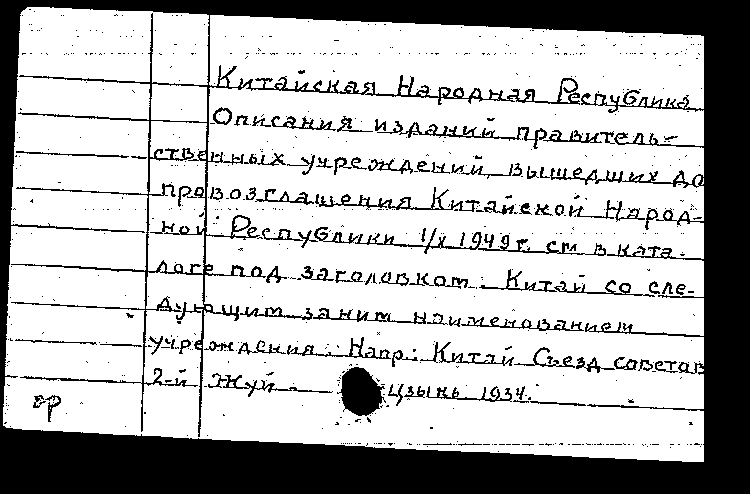 Китайская Народная Республика
Описания изданий правитель-
ственных учреждений, вышедших до
провозглашения Китайской Народ-
ной Республики 1/X 1949 г. см в ката-
логе под заголовком: Китай со сле-
дующим заним наименованием
учреждения. Напр.: Китай Съезд советов
2-й Жуй- цзынь 1934.
вр